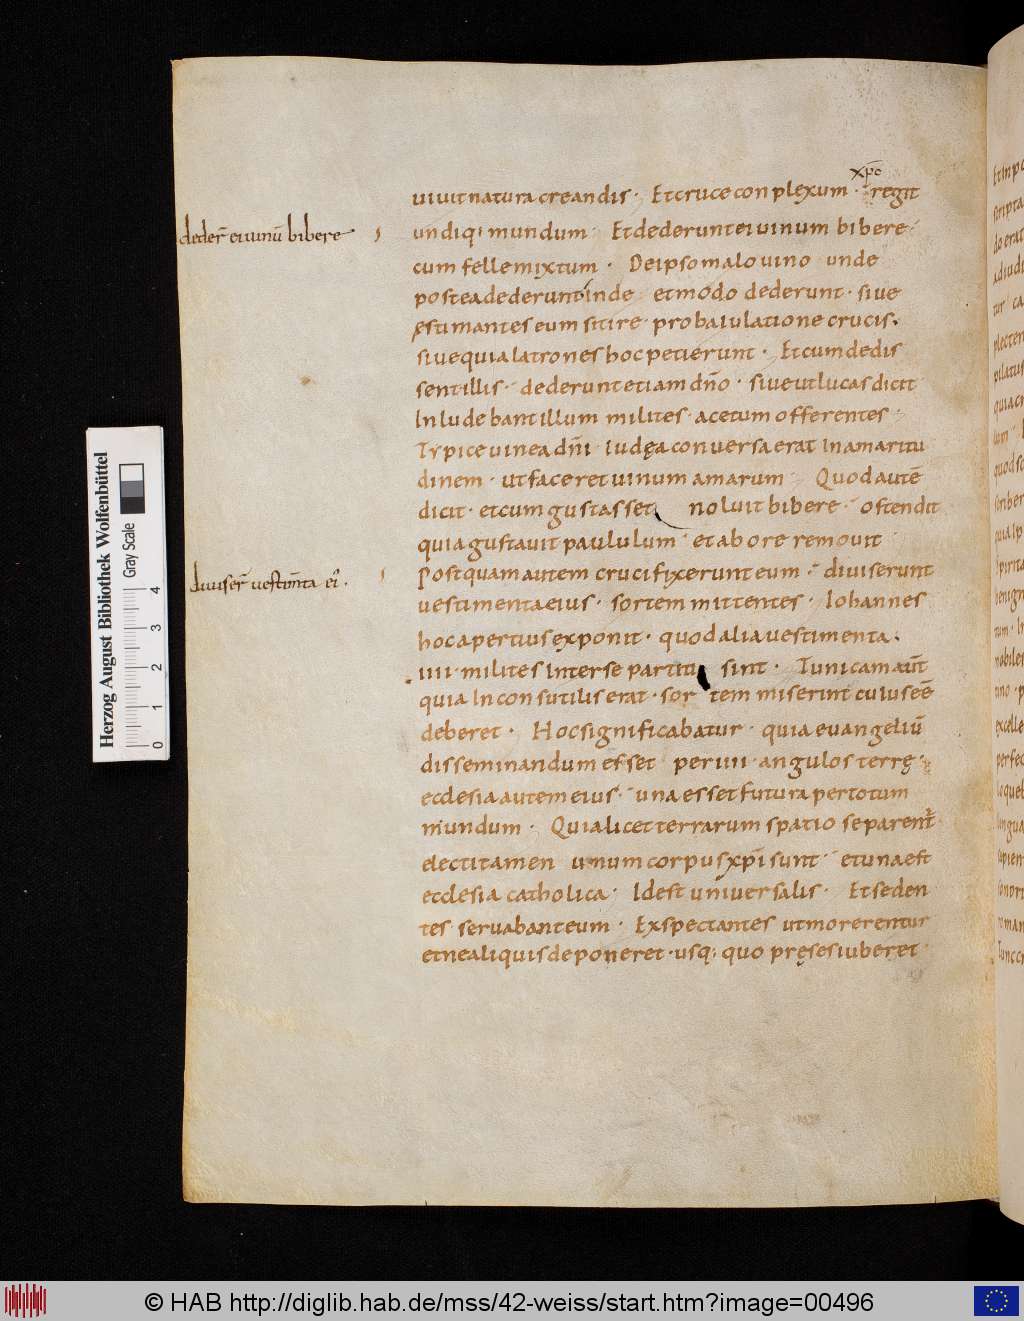 xp̄c
uiuit natura creandis · Et cruce conplexum · regit
dedert̄ ei uinū bibere
undiq; mundum · Et dederunt ei uinum bibere ·
cum felle mixtum · De ipso malo uino unde
postea dederunt inde et modo dederunt · siue
estimantes eum sitire · pro baiulatione crucis ·
siue quia latrones hoc petierunt · Et cum dedis
sent illis · dederunt etiam dn̄o · siue ut lucas dicit
Inludebant illum milites · acetum offerentes ·
Typice uinea dn̄i Iudęa conuersa erat in amaritu
dinem · ut faceret uinum amarum Quod autē
dicit · et cum gustasset noluit bibere · ostendit
quia gustauit paululum et ab ore remouit
diuisert̄ uestim̄ta ei' ·
Postquam autem crucifixerunt eum · diuiserunt
uestimenta eius · sortem mittentes · Iohannes
hoc apertius exponit · quod alia uestimenta ·
IIII · milites inter se partiti sint · Tunicam aūt
quia inconsutilis erat · sortem miserint cuius eē
deberet · Hoc significabatur · quia euangeliū
disseminandum esset per IIII · angulos terrę ·
ecclesia autem eius · una esset futura per totum
mundum · Quia licet terrarum spatio separent̄
electi tamen unum corpus xp̄i sunt et una est
ecclesia catholica · Idest uniuersalis · Et seden
tes seruabant eum · Exspectantes ut morerentur
et ne aliquis deponeret · usq; quo pręses iuberet
Herzog August Bibliothek Wolfenbüttel
Gray Scale
0 1 2 3 4
© HAB http://diglib.hab.de/mss/42-weiss/start.htm?image=00496